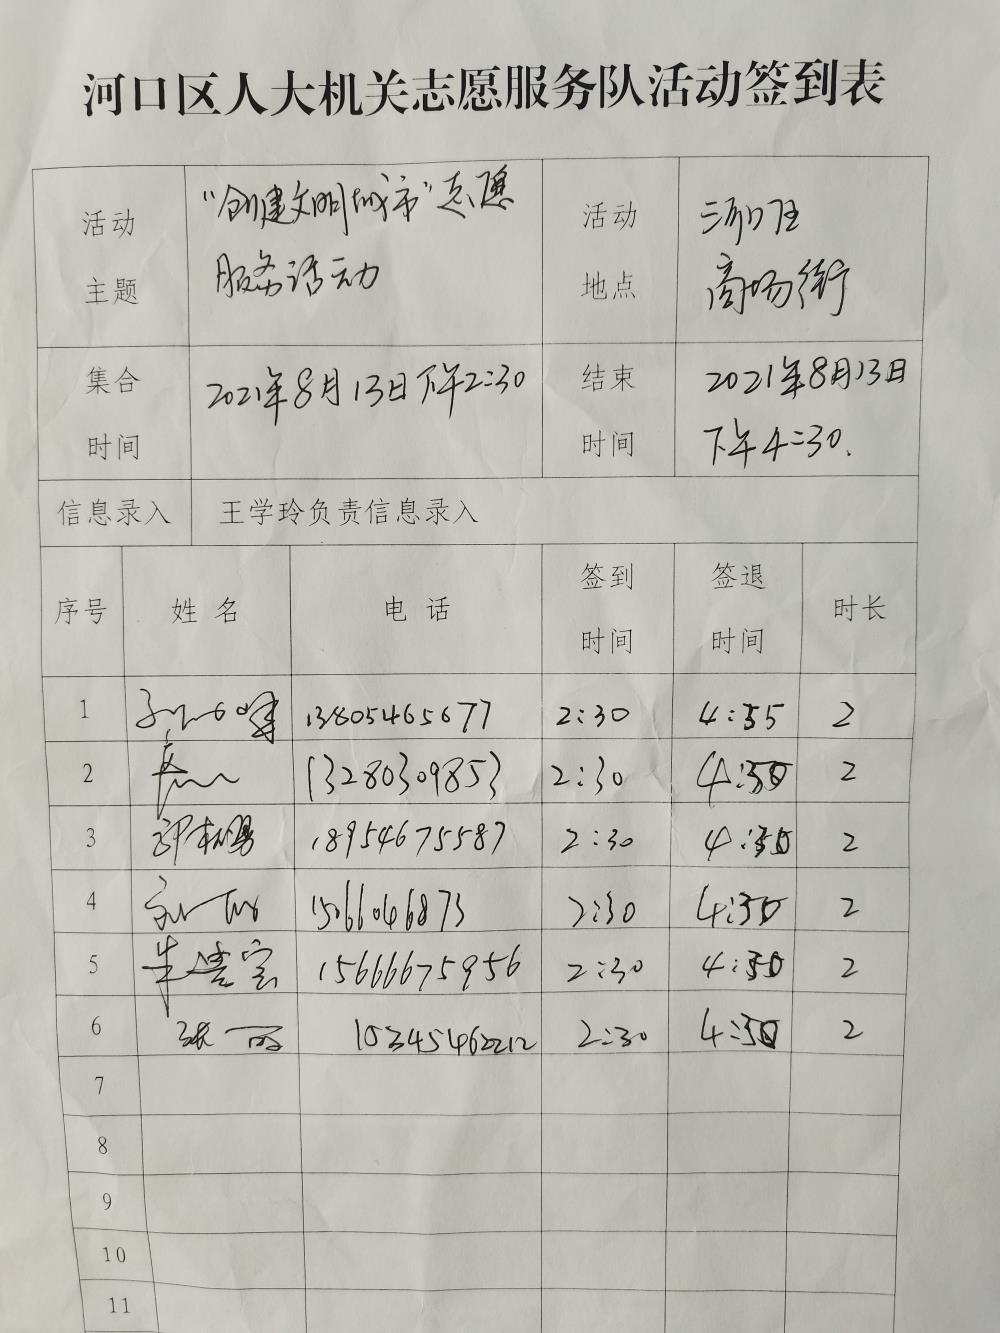 河口区人大机关志愿服务队活动签到表
活动主题 “创建文明城市”志愿服务活动 活动地点 河口区商场街
集合时间 2021年8月13日下午2:30 结束时间 2021年8月13日下午4:30.
信息录入 王学玲负责信息录入
序号 姓名 电话 签到时间 签退时间 时长
1 13805465677 2:30 2
2 13280309853 2:30 2
3 18954675587 2:30 2
4 15066046873 2:30 2
5 15666675956 2:30 2
6 张丽 2:30 2
7
8
9
10
11